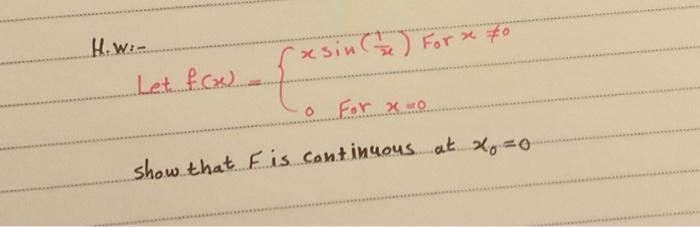 H.W:-
Let f(x) = { x sin(1/x) For x ≠0
0 For x=0
show that F is continuous at x₀=0